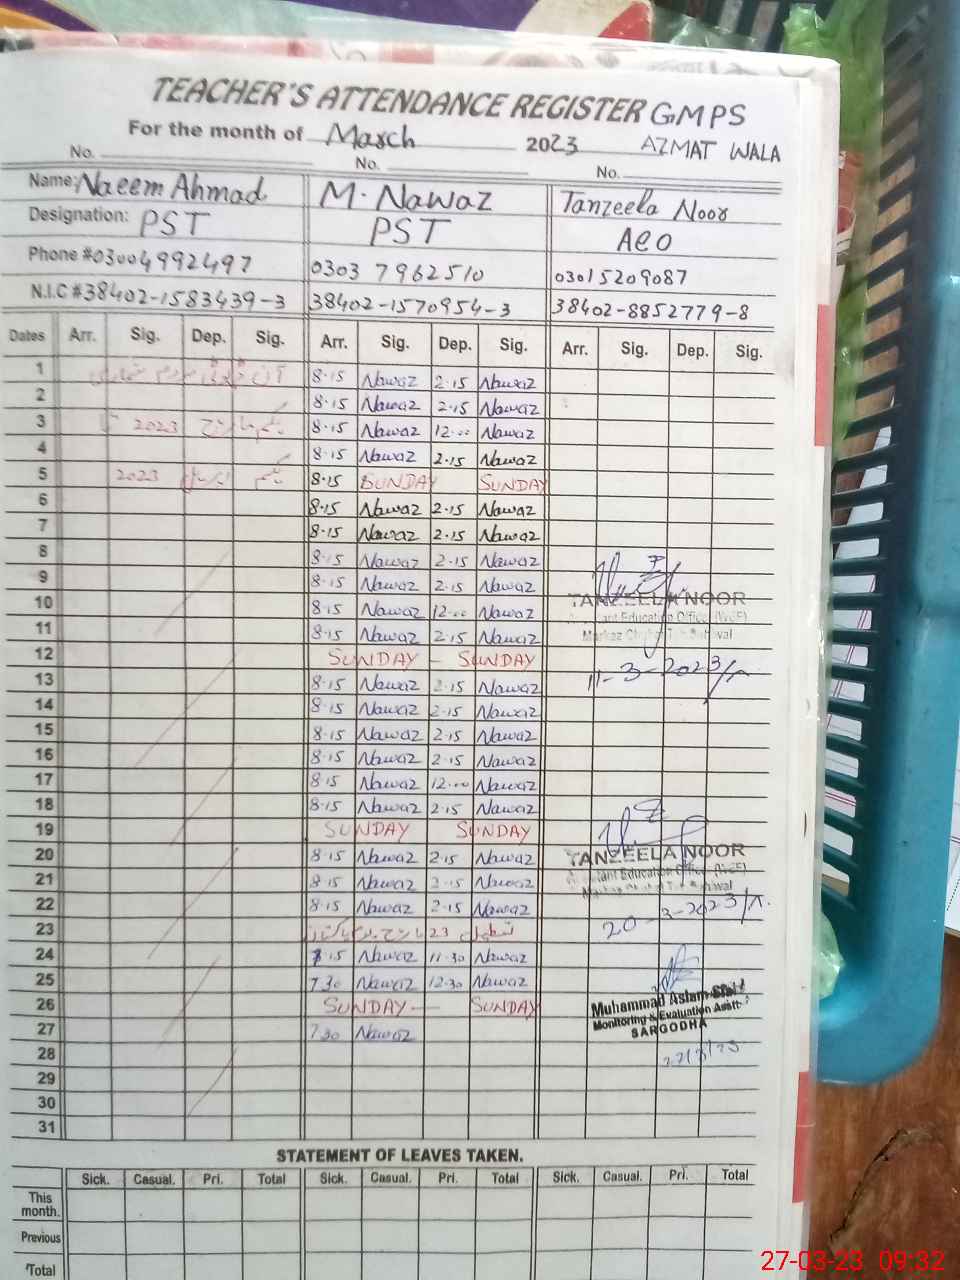 TEACHER'S ATTENDANCE REGISTER GMPS
For the month of March 2023 AZMAT WALA
No. No. No.
Name: Naeem Ahmad M. Nawaz Tanzeela Noor
Designation: PST PST AEO
Phone # 03004992497 0303 7962510 03015209087
N.I.C # 38402-1583439-3 38402-1570954-3 38402-8852779-8
Dates Arr. Sig. Dep. Sig. Arr. Sig. Dep. Sig. Arr. Sig. Dep. Sig.
1 8.15 Nawaz 2.15 Nawaz
2 8.15 Nawaz 2.15 Nawaz
3 یکم مارچ 2023 تا 8.15 Nawaz 12.00 Nawaz
4 8.15 Nawaz 2.15 Nawaz
5 یکم اپریل 2023 8.15 SUNDAY SUNDAY
6 8.15 Nawaz 2.15 Nawaz
7 8.15 Nawaz 2.15 Nawaz
8 8.15 Nawaz 2.15 Nawaz
9 8.15 Nawaz 2.15 Nawaz TANZEELA NOOR
10 8.15 Nawaz 12.00 Nawaz Assistant Education Officer
11 8.15 Nawaz 2.15 Nawaz Markaz
12 SUNDAY - SUNDAY 11-3-2023
13 8.15 Nawaz 2.15 Nawaz
14 8.15 Nawaz 2.15 Nawaz
15 8.15 Nawaz 2.15 Nawaz
16 8.15 Nawaz 2.15 Nawaz
17 8.15 Nawaz 12.00 Nawaz
18 8.15 Nawaz 2.15 Nawaz
19 SUNDAY SUNDAY TANZEELA NOOR
20 8.15 Nawaz 2.15 Nawaz Assistant Education Officer
21 8.15 Nawaz 2.15 Nawaz Markaz
22 8.15 Nawaz 2.15 Nawaz 20-3-2023
23 تعطیل 23 مارچ
24 8.15 Nawaz 11.30 Nawaz
25 7.30 Nawaz 12.30 Nawaz Muhammad Aslam
26 SUNDAY - SUNDAY Monitoring & Evaluation Asstt:
27 7.30 Nawaz SARGODHA
28 22/3/23
29
30
31
STATEMENT OF LEAVES TAKEN.
Sick. Casual. Pri. Total Sick. Casual. Pri. Total Sick. Casual. Pri. Total
This month.
Previous
Total
27-03-23 09:32